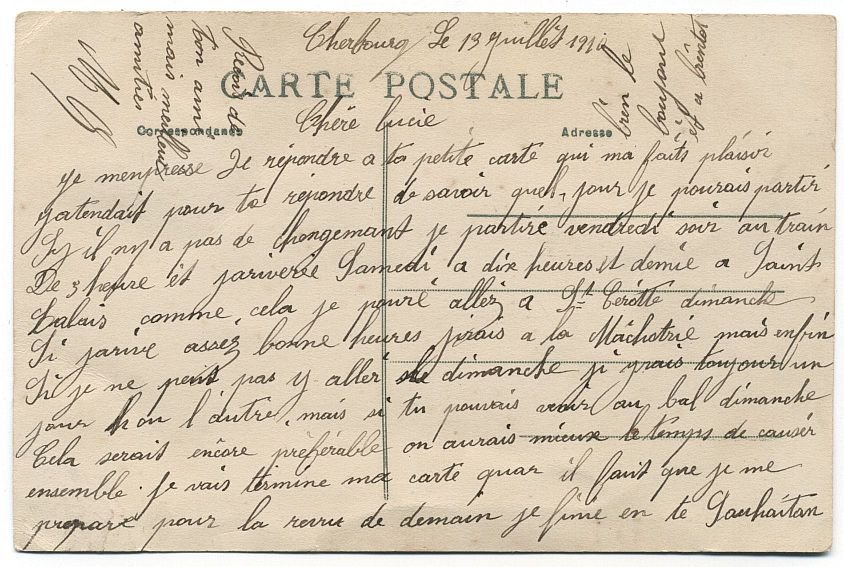 Cherbourg Le 13 juillet 191
CARTE POSTALE
Correspondance
Adresse
Chère Lucie
Je menpresse De répondre a ta petite carte qui ma faits plaisir
jatendait pour te répondre de savoir quel jour je pourais partir
Sy il ny a pas de changemant je partiré vendredi soir au train
De 3 heure et jariverée Samedi a dix heures et demie a Saint
Calais comme cela je pouré allez a St Cérotte dimanche
Si jarive assez bonne heures jirais a la Mâchotrié mais enfin
Si je ne peut pas y aller le dimanche ji yrais toujour un
jour hou l'autre, mais si tu pouvais venir au bal dimanche
Cela serais encore préférable on aurais mieux le temps de causér
ensemble. Je vais terminé ma carte quar il faut que je me
preparé pour la revu de demain je finie en te Souhaitan
bien le
bonjour
et a bientot
Reçois de
ton ami
mais meilleur
amitiés